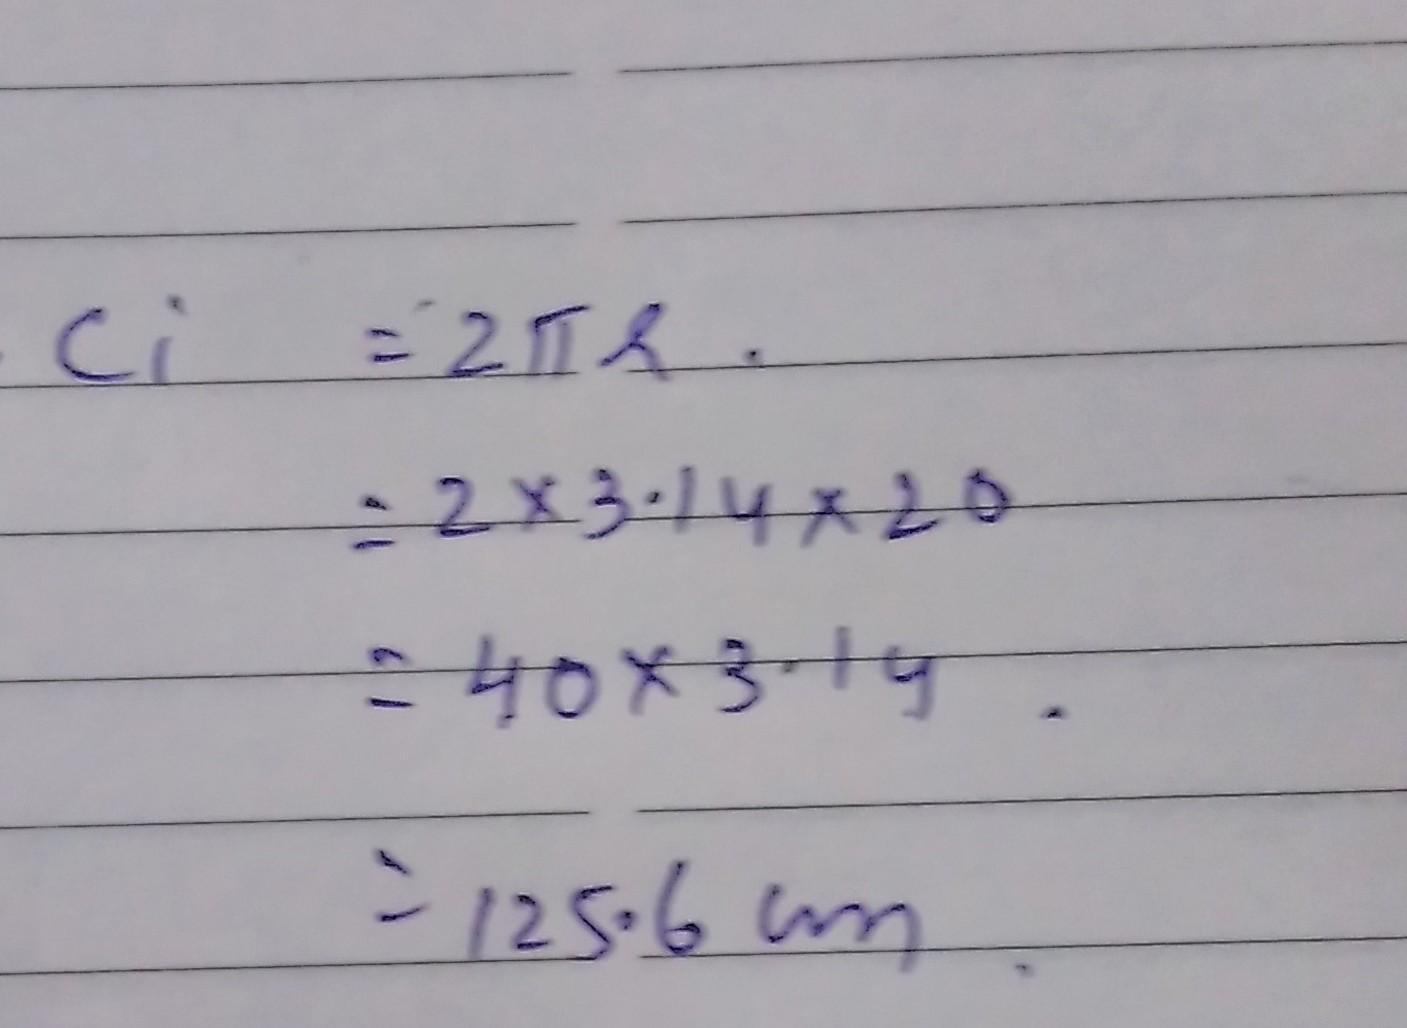 Ci = 2πr.
= 2 × 3.14 × 20
= 40 × 3.14.
= 125.6 cm.